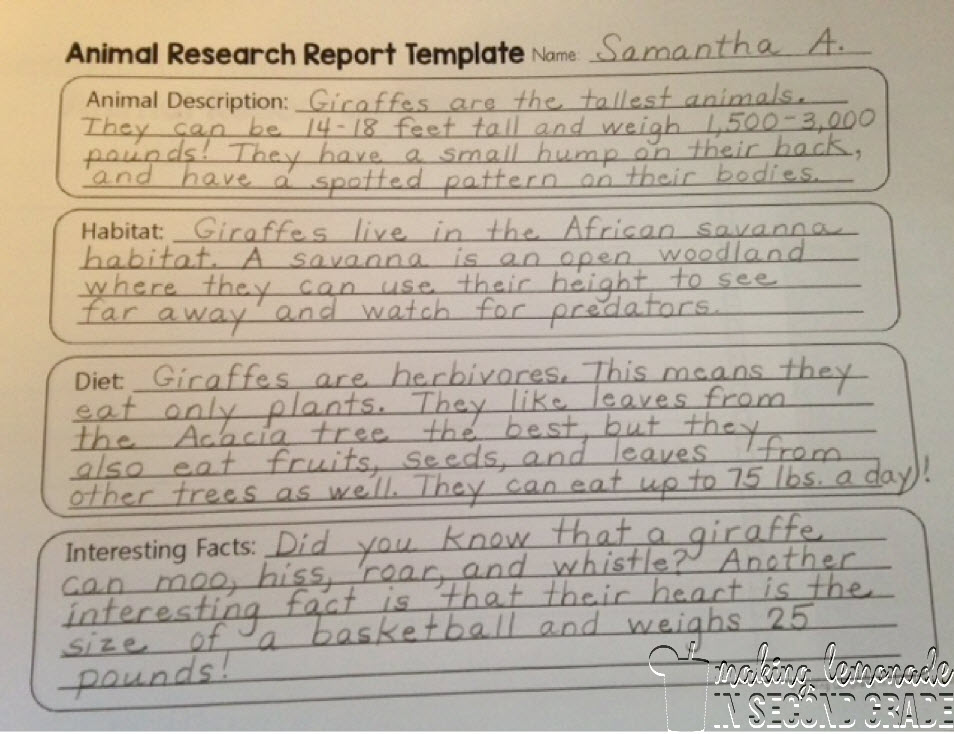 Animal Research Report Template Name: Samantha A.
Animal Description: Giraffes are the tallest animals.
They can be 14-18 feet tall and weigh 1,500-3,000
pounds! They have a small hump on their back,
and have a spotted pattern on their bodies.
Habitat: Giraffes live in the African savanna
habitat. A savanna is an open woodland
where they can use their height to see
far away and watch for predators.
Diet: Giraffes are herbivores. This means they
eat only plants. They like leaves from
the Acacia tree the best, but they
also eat fruits, seeds, and leaves from
other trees as well. They can eat up to 75 lbs. a day!
Interesting Facts: Did you know that a giraffe
can moo, hiss, roar, and whistle? Another
interesting fact is that their heart is the
size of a basketball and weighs 25
pounds!
making lemonade
IN SECOND GRADE